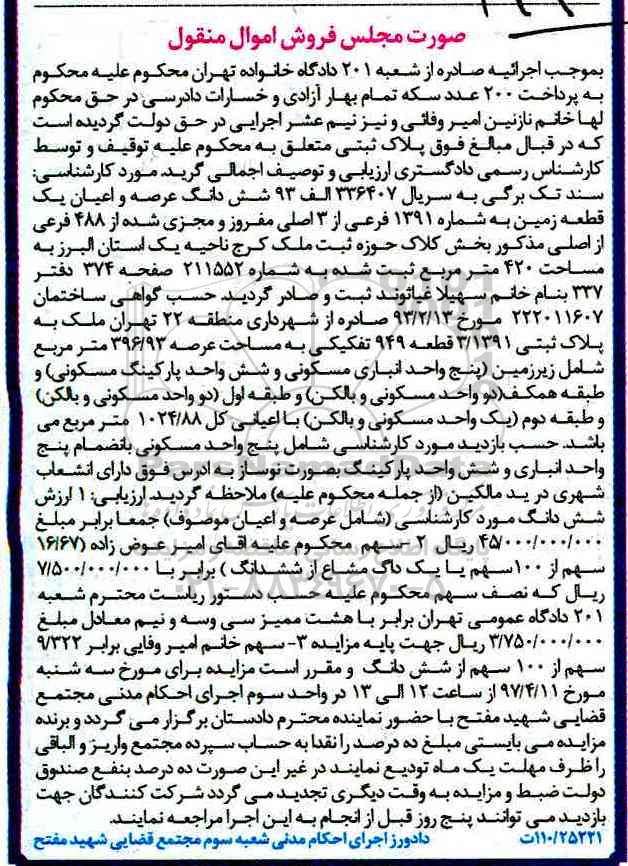 صورت مجلس فروش اموال منقول
بموجب اجرائیه صادره از شعبه ۲۰۱ دادگاه خانواده تهران محکوم علیه محکوم
به پرداخت ۲۰۰ عدد سکه تمام بهار آزادی و خسارات دادرسی در حق محکوم
لها خانم نازنین امیر وفائی و نیز نیم عشر اجرایی در حق دولت گردیده است
که در قبال مبالغ فوق پلاک ثبتی متعلق به محکوم علیه توقیف و توسط
کارشناس رسمی دادگستری ارزیابی و توصیف اجمالی گرید. مورد کارشناسی:
سند تک برگی به سریال ۳۳۶۴۰۷ الف ۹۳ شش دانگ عرصه و اعیان یک
قطعه زمین به شماره ۱۳۹۱ فرعی از ۳ اصلی مفروز و مجزی شده از ۴۸۸ فرعی
از اصلی مذکور بخش کلاک حوزه ثبت ملک کرج ناحیه یک استان البرز به
مساحت ۴۲۰ متر مربع ثبت شده به شماره ۲۱۱۵۵۲ صفحه ۳۷۴ دفتر
۳۳۷ بنام خانم سهیلا غیاثوند ثبت و صادر گردید. حسب گواهی ساختمان
۲۲۲۰۱۱۶۰۷ مورخ ۹۳/۲/۱۳ صادره از شهرداری منطقه ۲۲ تهران ملک به
پلاک ثبتی ۳/۱۳۹۱ قطعه ۹۴۹ تفکیکی به مساحت عرصه ۳۹۶/۹۳ متر مربع
شامل زیرزمین (پنج واحد انباری مسکونی و شش واحد پارکینگ مسکونی) و
طبقه همکف(دو واحد مسکونی و بالکن) و طبقه اول (دو واحد مسکونی و بالکن)
و طبقه دوم (یک واحد مسکونی و بالکن) با اعیانی کل ۱۰۲۴/۸۸ متر مربع می
باشد. حسب بازدید مورد کارشناسی شامل پنج واحد مسکونی بانضمام پنج
واحد انباری و شش واحد پارکینگ بصورت نوساز به ادرس فوق دارای انشعاب
شهری در ید مالکین (از جمله محکوم علیه) ملاحظه گردید. ارزیابی: ۱ ارزش
شش دانگ مورد کارشناسی (شامل عرصه و اعیان موصوف) جمعا برابر مبلغ
۴۵/۰۰۰/۰۰۰/۰۰۰ ریال ۲ سهم محکوم علیه آقای امیر عوض زاده (۱۶/۶۷
سهم از ۱۰۰ سهم یا یک داگ مشاع از ششدانگ ) برابر با ۷/۵۰۰/۰۰۰/۰۰۰
ریال که نصف سهم محکوم علیه حسب دستور ریاست محترم شعبه
۲۰۱ دادگاه عمومی تهران برابر با هشت ممیز سی وسه و نیم معادل مبلغ
۳/۷۵۰/۰۰۰/۰۰۰ ریال جهت پایه مزایده ۳- سهم خانم امیر وفایی برابر ۹/۳۲۲
سهم از ۱۰۰ سهم از شش دانگ و مقرر است مزایده برای مورخ سه شنبه
مورخ ۹۷/۴/۱۱ از ساعت ۱۲ الی ۱۳ در واحد سوم اجرای احکام مدنی مجتمع
قضایی شهید مفتح با حضور نماینده محترم دادستان برگزار می گردد و برنده
مزایده می بایستی مبلغ ده درصد را نقدا به حساب سپرده مجتمع واریز و الباقی
را ظرف مهلت یک ماه تودیع نمایند در غیر این صورت ده درصد بنفع صندوق
دولت ضبط و مزایده به وقت دیگری تجدید می گردد شرکت کنندگان جهت
بازدید می توانند پنج روز قبل از انجام به این اجرا مراجعه نمایند.
۱۱۰/۲۵۲۲۱ت دادورز اجرای احکام مدنی شعبه سوم مجتمع قضایی شهید مفتح